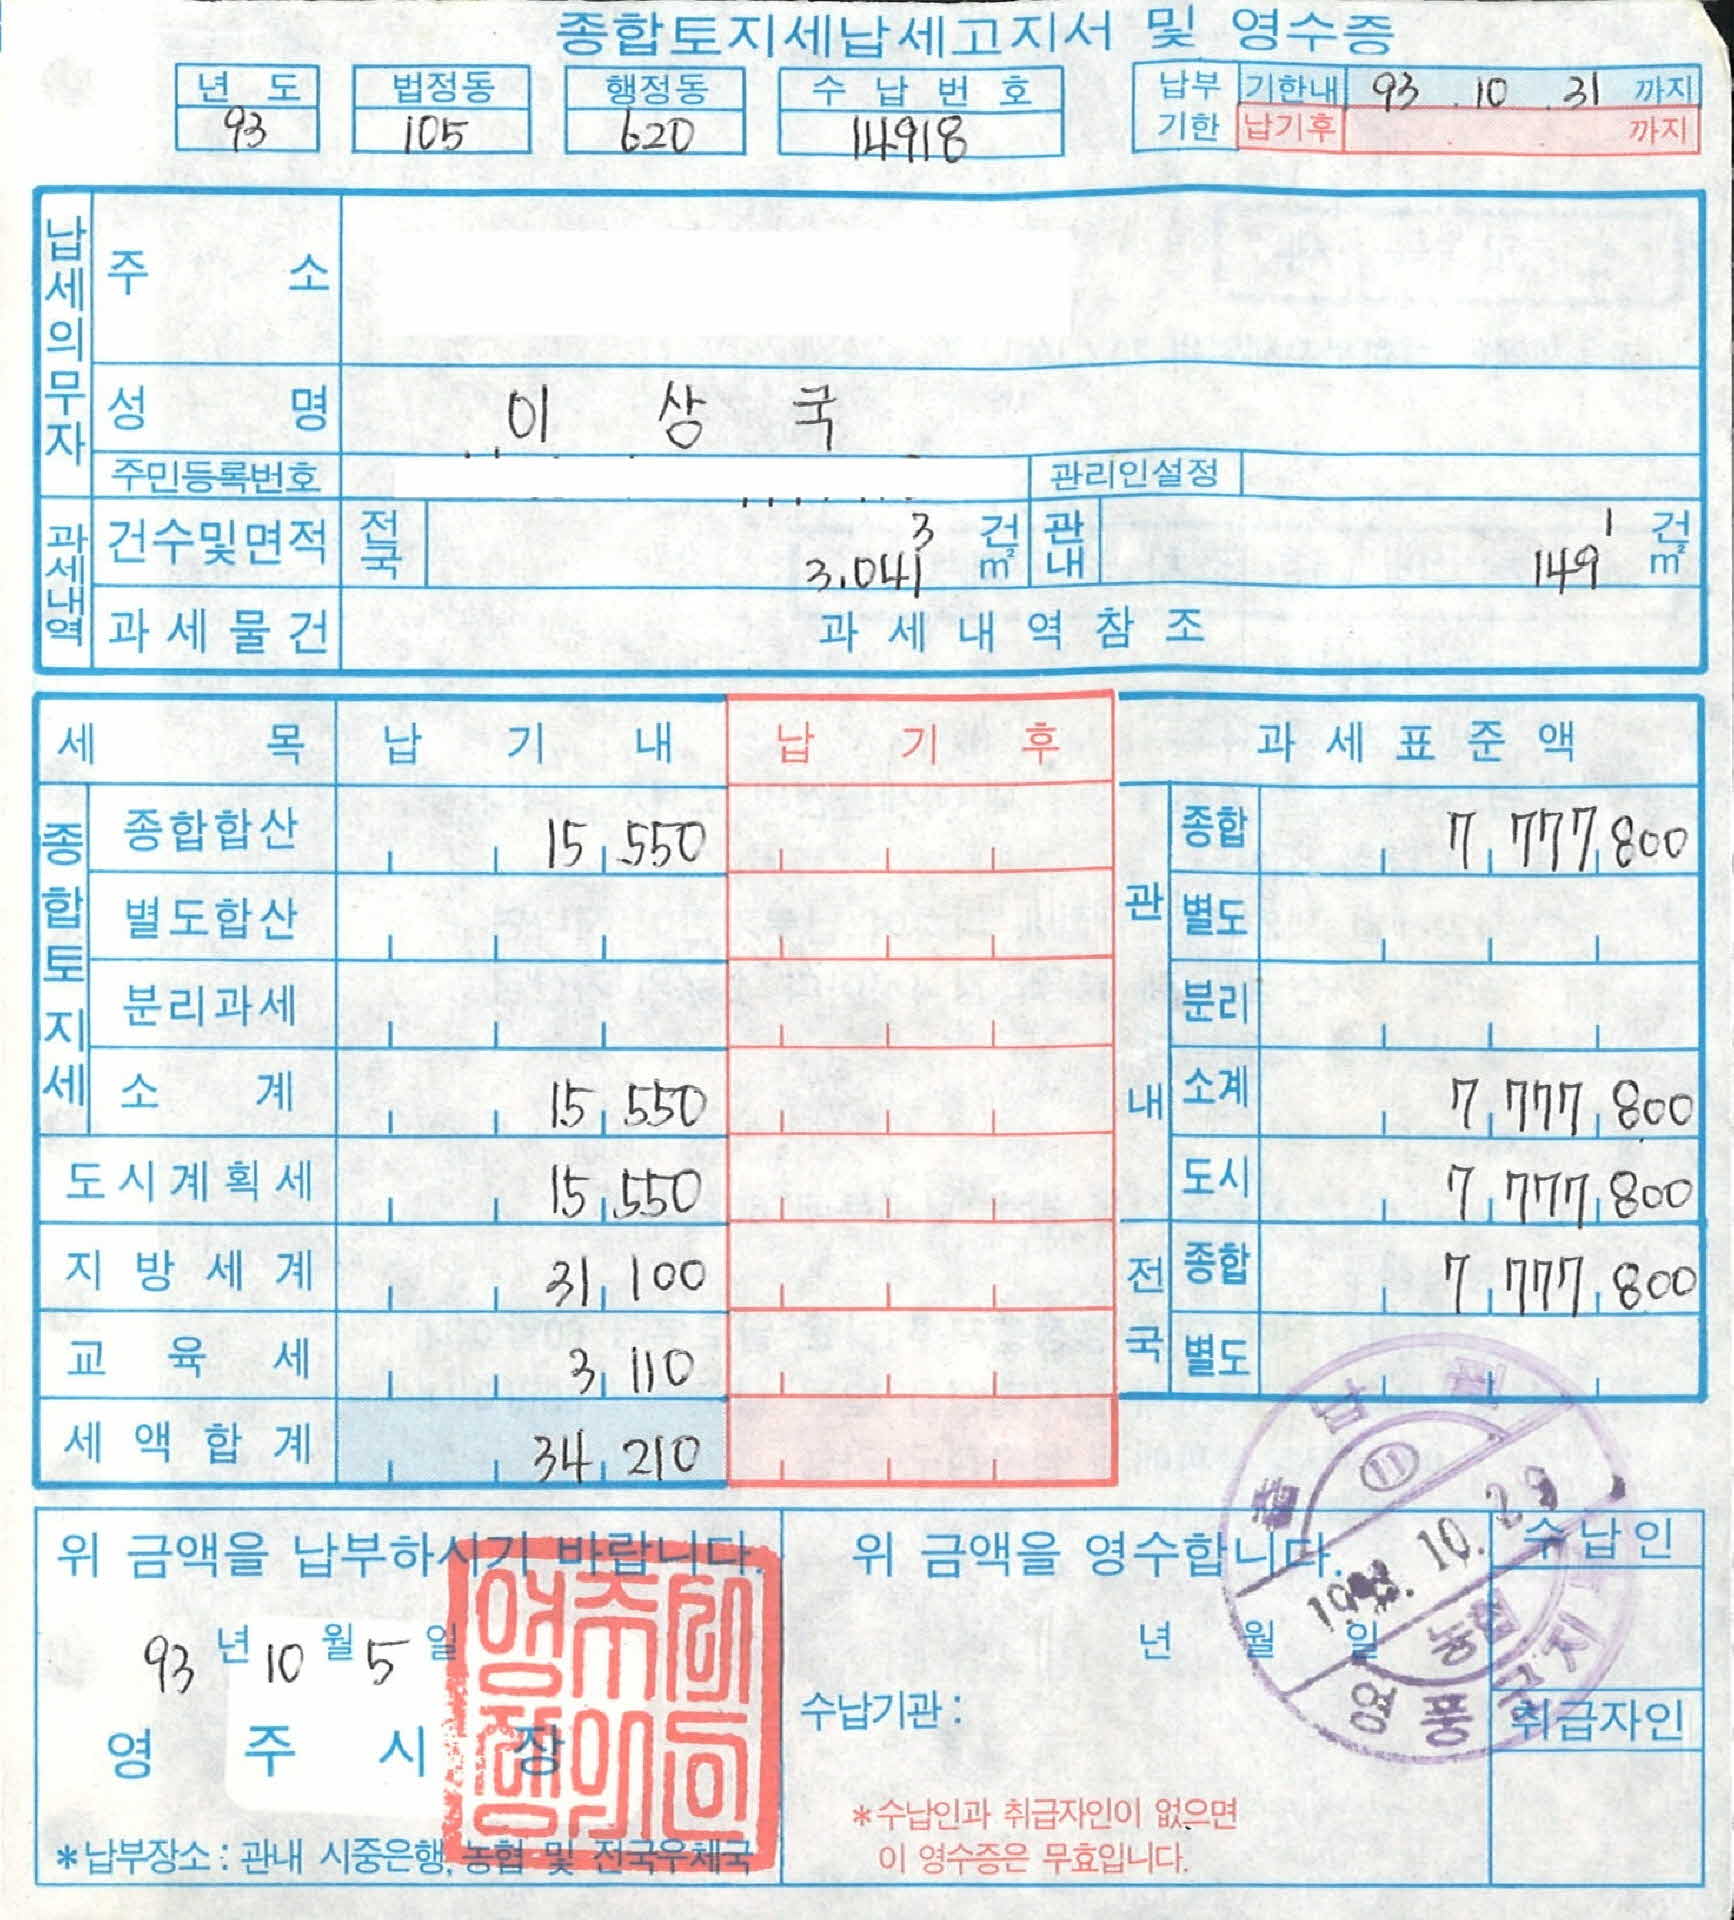 종합토지세납세고지서 및 영수증
년 도 법정동 행정동 수 납 번 호 납부 기한 기한내 93 . 10 . 31 까지
93 105 620 14918 납기후 까지
납세의무자
주 소
성 명 이 상 국
주민등록번호 관리인설정
과세내역
건수및면적 전국 3 건 관내 1 건
3.041 ㎡ 149 ㎡
과 세 물 건 과 세 내 역 참 조
세 목 납 기 내 납 기 후 과 세 표 준 액
종합토지세 관내
종합합산 15,550 종합 7,777,800
별도합산 별도
분리과세 분리
소 계 15,550 소계 7,777,800
도시계획세 15,550 도시 7,777,800
전국
지 방 세 계 31,100 종합 7,777,800
교 육 세 3,110 별도
세 액 합 계 34,210
위 금액을 납부하시기 바랍니다.
93 년 10 월 5 일
영 주 시 장
*납부장소 : 관내 시중은행, 농협 및 전국우체국
위 금액을 영수합니다.
년 월 일
수납기관 :
*수납인과 취급자인이 없으면
이 영수증은 무효입니다.
수납인
취급자인
11
10. 29
농협
영풍군지